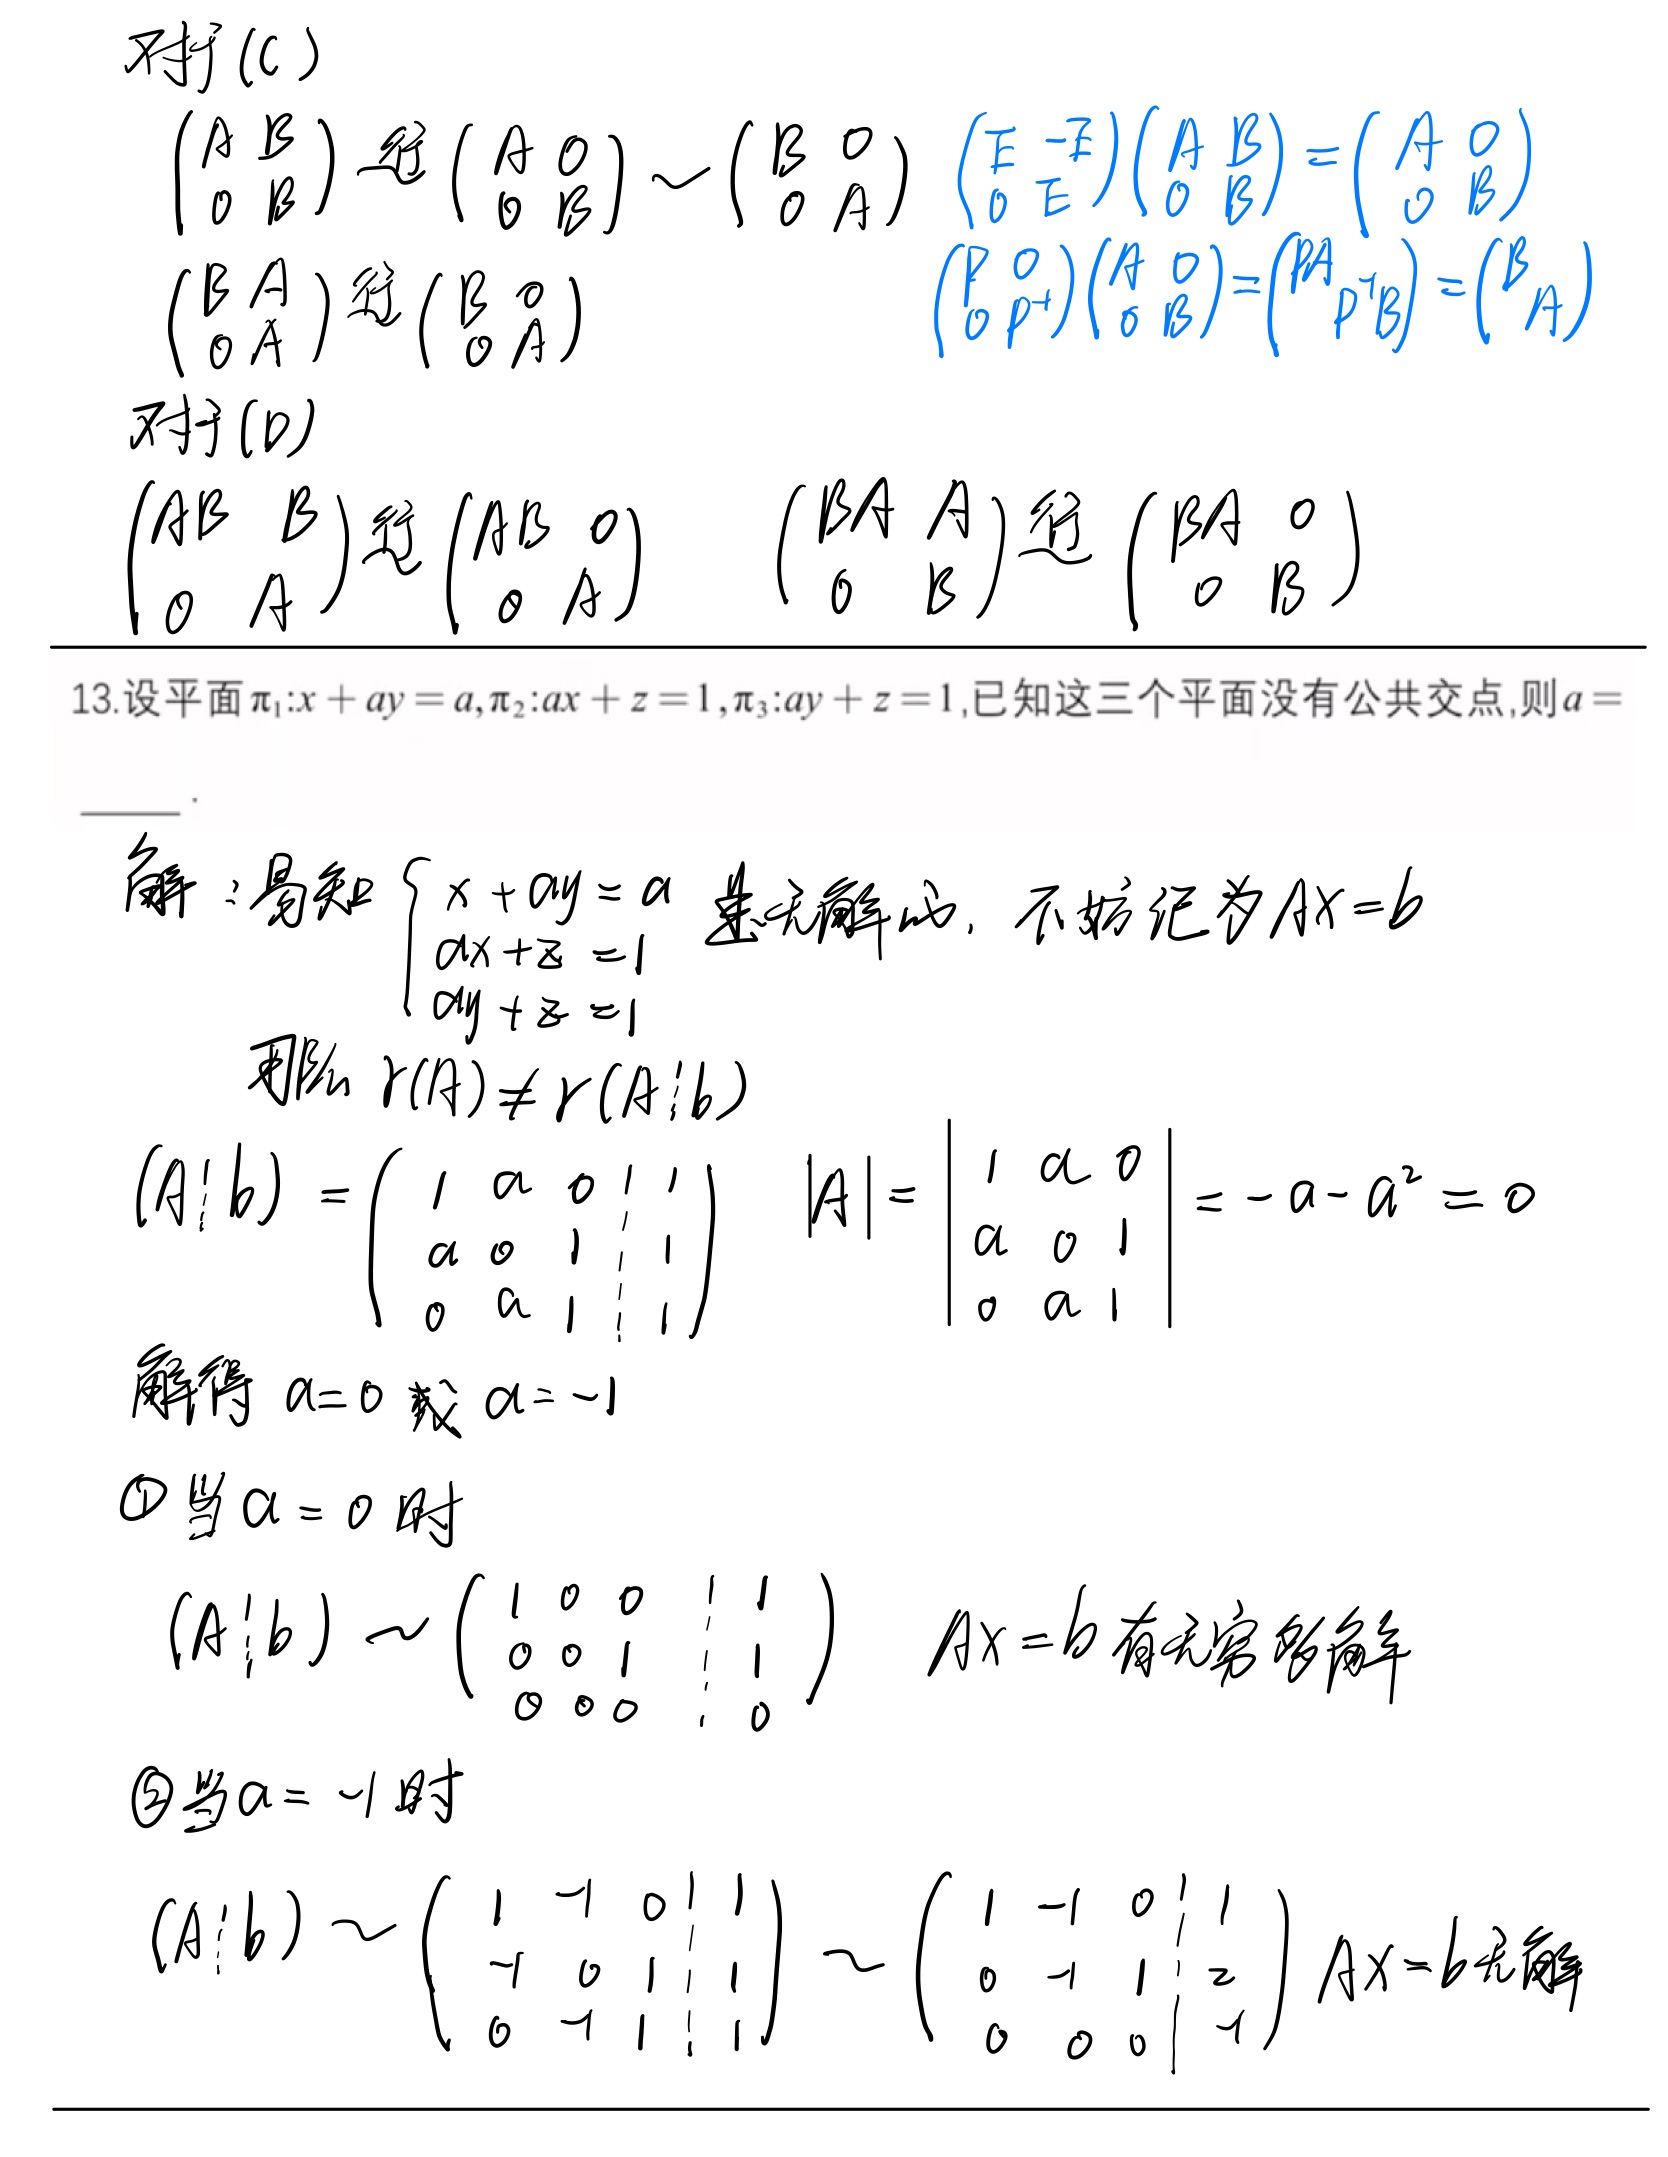 对于(C)
(A B; 0 B) 行~ (A 0; 0 B) ~ (B 0; 0 A) (E -E; 0 E)(A B; 0 B) = (A 0; 0 B)
(B A; 0 A) 行~ (B 0; 0 A) (P 0; 0 P⁻¹)(A 0; 0 B) = (PA  ;  P⁻¹B) = (B  ;  A)
对于(D)
(AB B; 0 A) 行~ (AB 0; 0 A) (BA A; 0 B) 行~ (BA 0; 0 B)
13.设平面π₁:x + ay = a,π₂:ax + z = 1,π₃:ay + z = 1,已知这三个平面没有公共交点,则a =
______.
解:易知 { x + ay = a 是无解的, 不妨记为 AX = b
ax + z = 1
ay + z = 1
那么 r(A) ≠ r(A¦b)
(A¦b) = (1 a 0 ¦ 1; a 0 1 ¦ 1; 0 a 1 ¦ 1) |A| = |1 a 0; a 0 1; 0 a 1| = -a - a² = 0
解得 a = 0 或 a = -1
①当 a = 0 时
(A¦b) ~ (1 0 0 ¦ 1; 0 0 1 ¦ 1; 0 0 0 ¦ 0) AX = b 有无穷多解
②当 a = -1 时
(A¦b) ~ (1 -1 0 ¦ 1; -1 0 1 ¦ 1; 0 -1 1 ¦ 1) ~ (1 -1 0 ¦ 1; 0 -1 1 ¦ 2; 0 0 0 ¦ -1) AX = b 无解